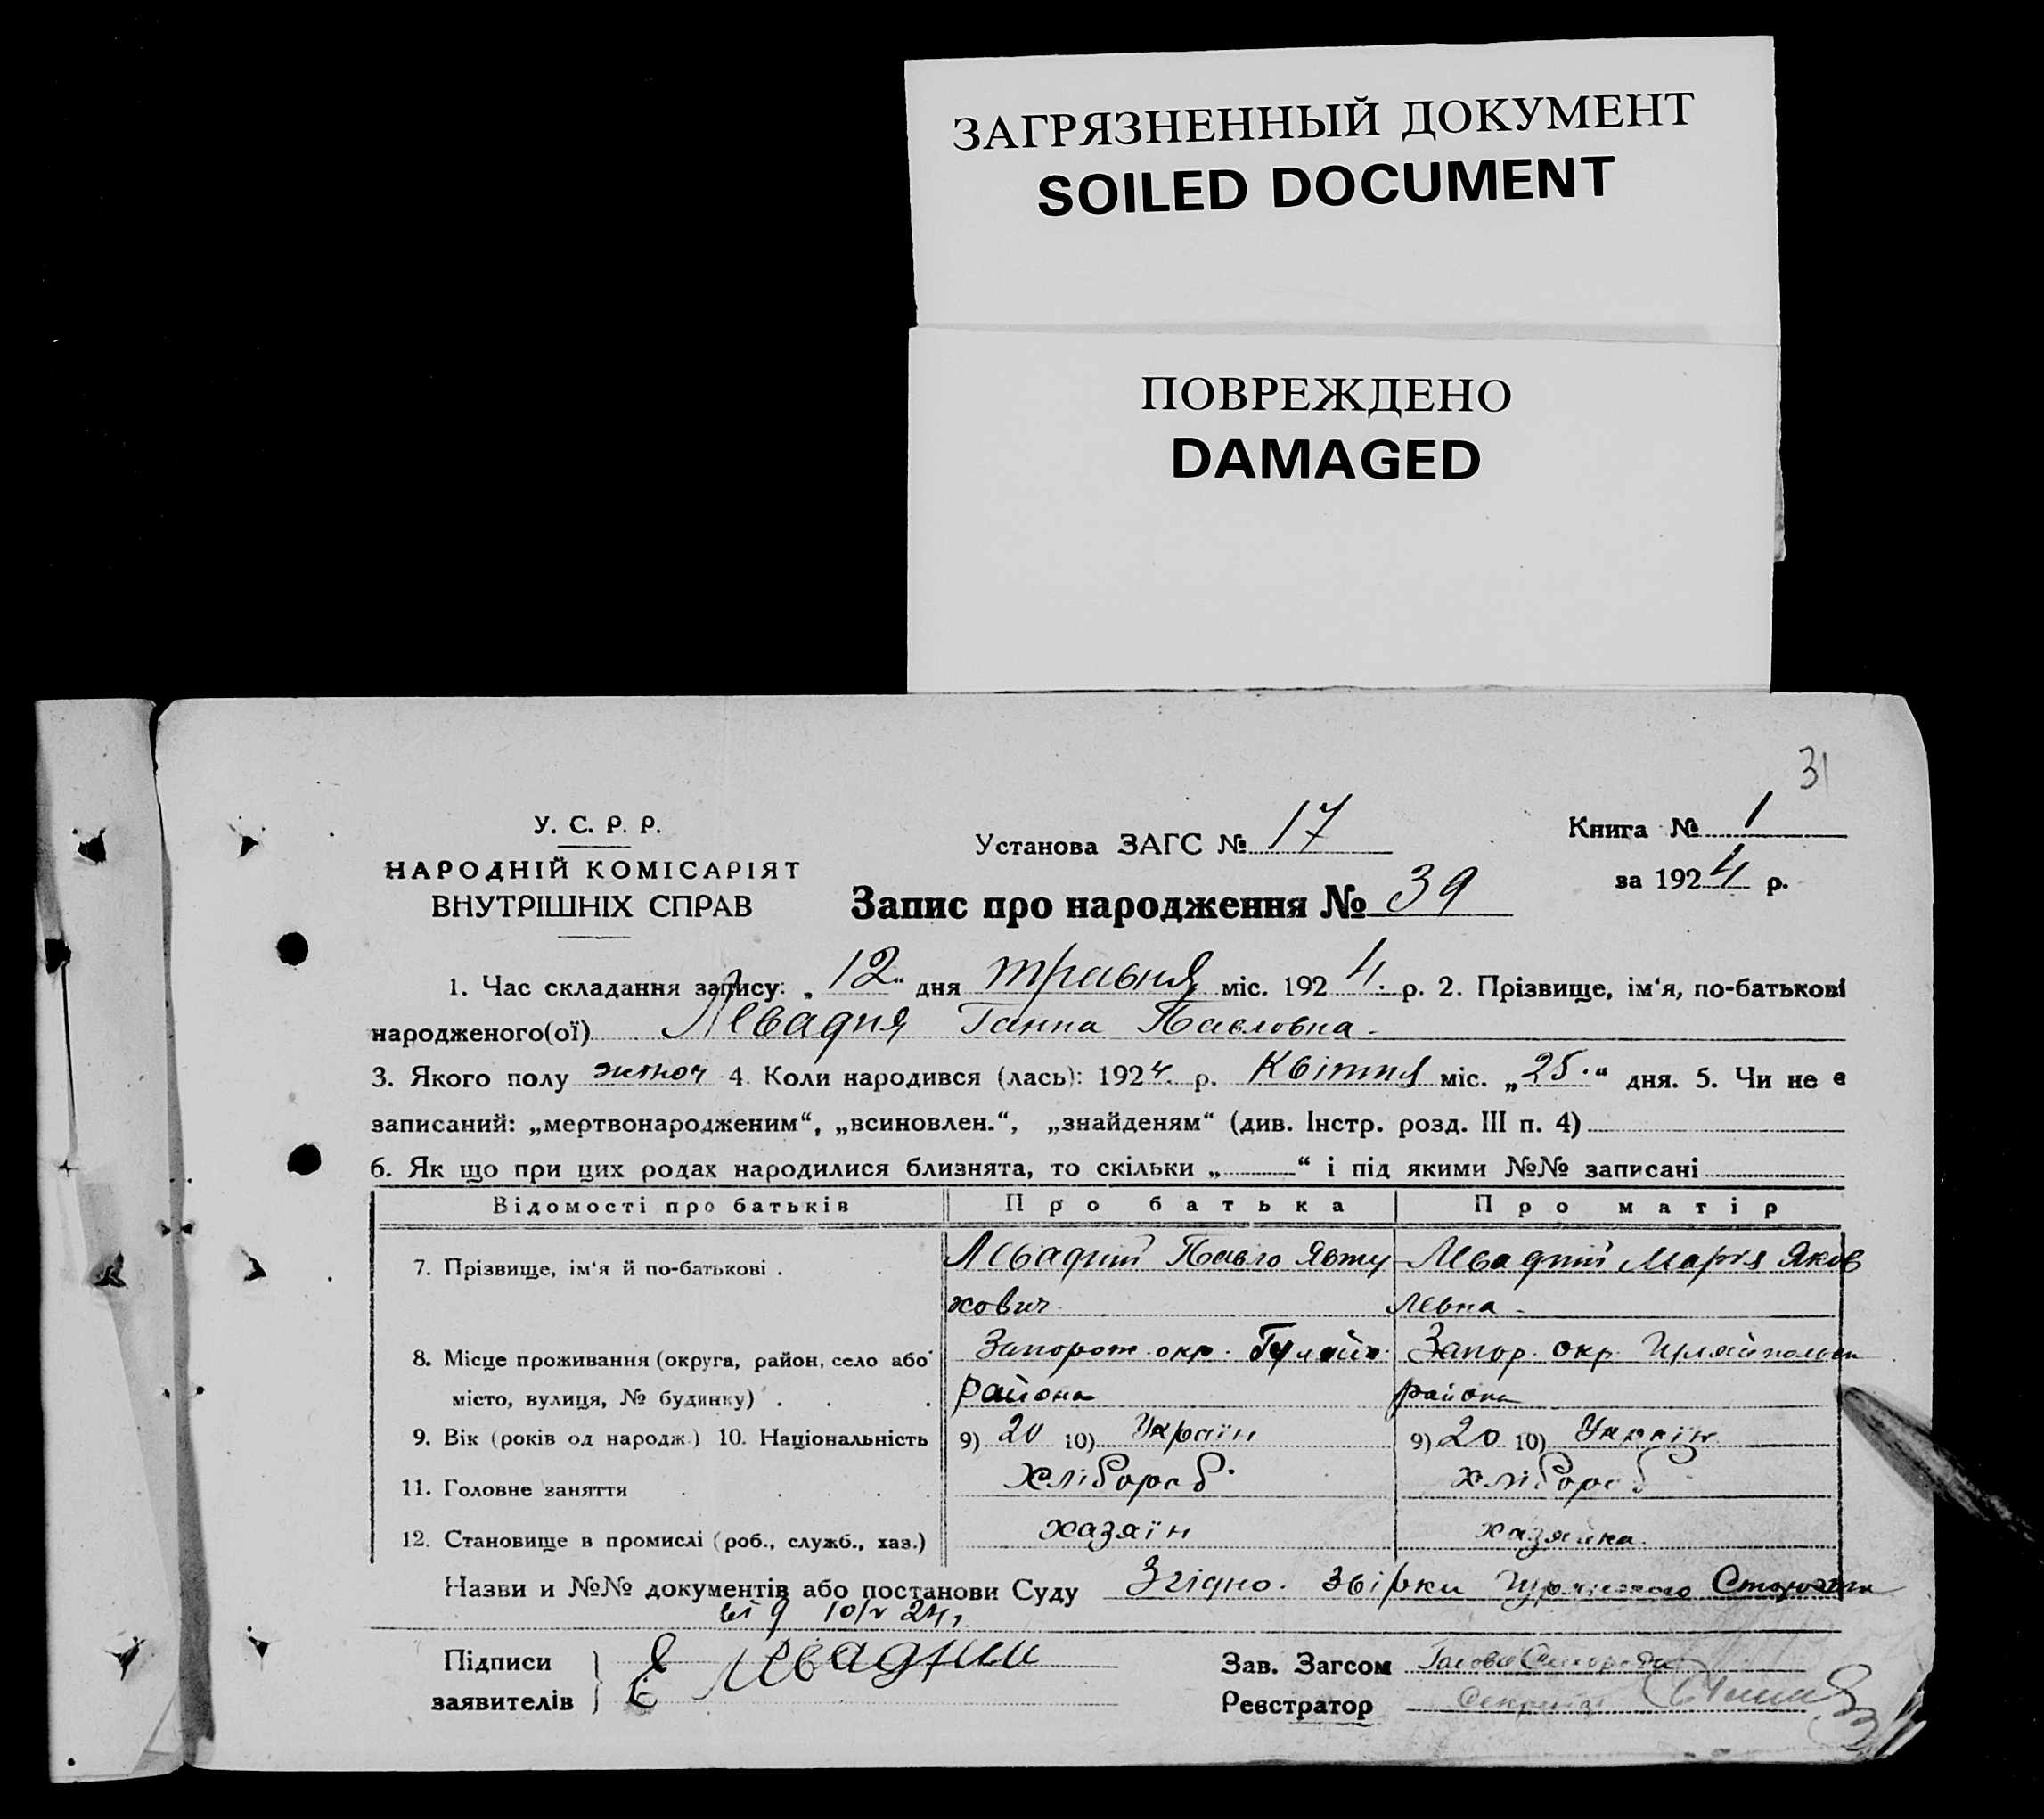 ЗАГРЯЗНЕННЫЙ ДОКУМЕНТ
SOILED DOCUMENT
ПОВРЕЖДЕНО
DAMAGED
31
У. С. Р. Р.
НАРОДНІЙ КОМІСАРІЯТ
ВНУТРІШНІХ СПРАВ
Установа ЗАГС № 17
Запис про народження № 39
Книга № 1
за 1924 р.
1. Час складання запису: „12“ дня травня міс. 1924. р. 2. Прізвище, ім‘я, по-батькові
народженого(ої) Левадня Ганна Павловна -
3. Якого полу жіноч 4. Коли народився (лась): 1924. р. Квітня міс. „25.“ дня. 5. Чи не є
записаний: „мертвонародженим“, „всиновлен.“, „знайденям“ (див. Інстр. розд. III п. 4)
6. Як що при цих родах народилися близнята, то скільки „ “ і під якими №№ записані
Відомості про батьків Про батька Про матір
7. Прізвище, ім‘я й по-батькові . Левадний Павло Явту Левадний Марія Яков
хович левна -
8. Місце проживання (округа, район, село або Запорож. окр. Гуляйп. Запор. окр.
місто, вулиця, № будинку) . района района
9. Вік (років од народж.) 10. Національність 9) 20 10) Україн 9) 20 10) Україн
11. Головне заняття хлібороб. хлібороб
12. Становище в промислі (роб., служб., хаз.) хазяїн хазяйка.
Назви и №№ документів або постанови Суду Згідно
24
Підписи
заявителів
Е Левадний
Зав. Загсом Голова
Реєстратор Секретар